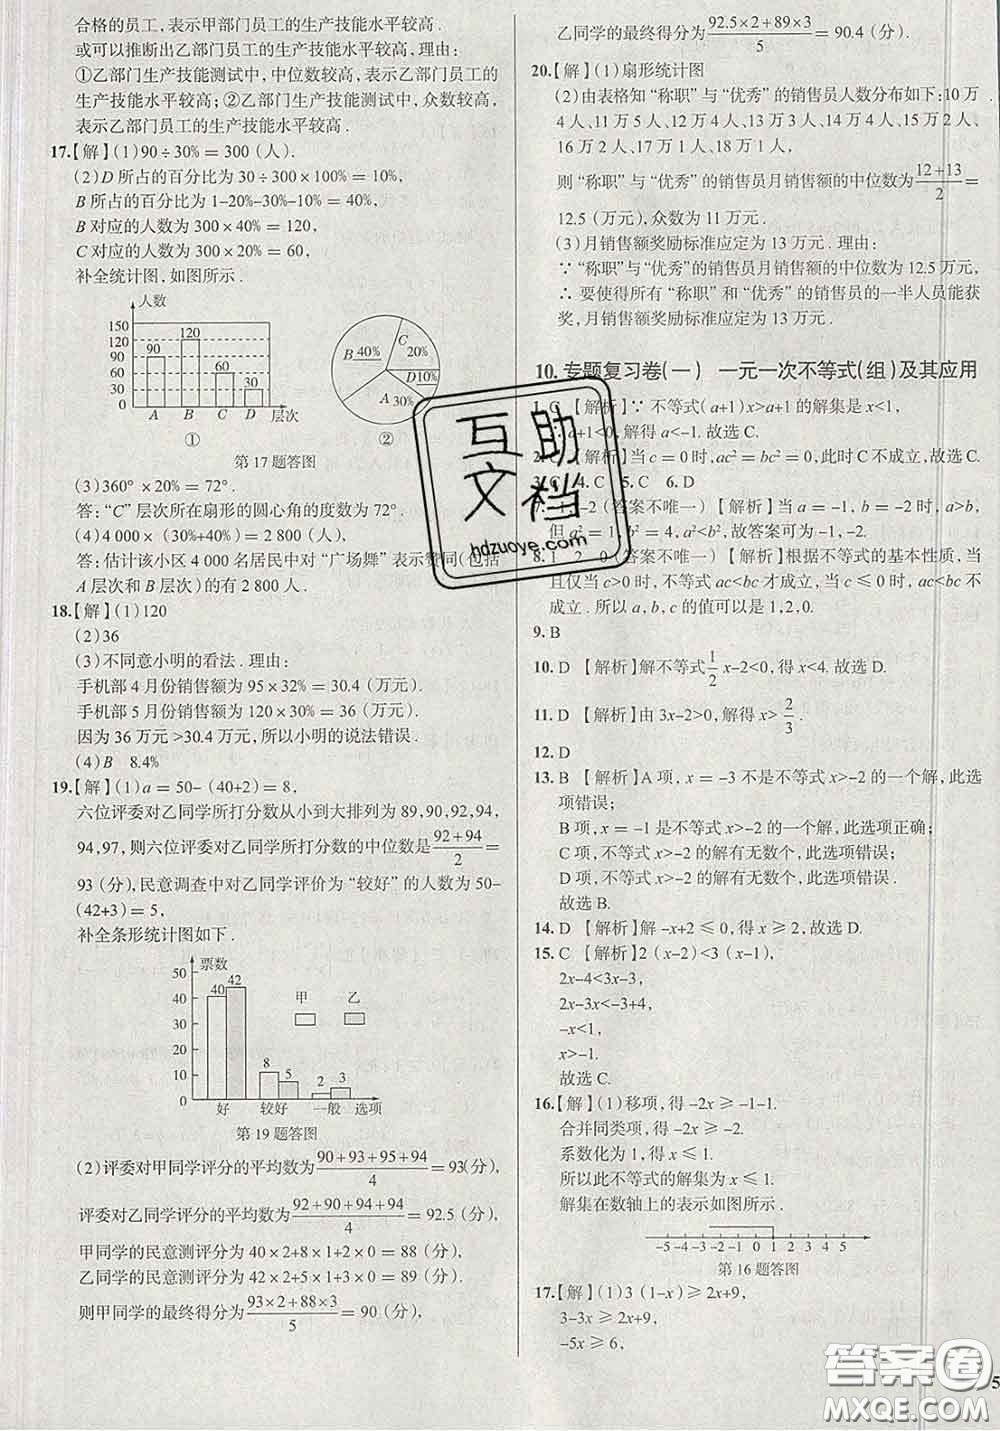 合格的员工，表示甲部门员工的生产技能水平较高．
或可以推断出乙部门员工的生产技能水平较高，理由：
①乙部门生产技能测试中，中位数较高，表示乙部门员工的
生产技能水平较高；②乙部门生产技能测试中，众数较高，
表示乙部门员工的生产技能水平较高．
17.【解】(1)90÷30%＝300(人)．
(2)D所占的百分比为30÷300×100%＝10%，
B所占的百分比为1–20%–30%–10%＝40%，
B对应的人数为300×40%＝120，
C对应的人数为300×20%＝60，
补全统计图，如图所示．
人数
150
120
90
60
30
0
90 120 60 30
A B C D 层次
①
B 40% C 20% D10% A 30%
②
第17题答图
(3)360°×20%＝72°．
答：“C”层次所在扇形的圆心角的度数为72°．
(4)4 000×(30%+40%)＝2 800(人)，
答：估计该小区4 000名居民中对“广场舞”表示赞同(包括
A层次和B层次)的有2 800人．
18.【解】(1)120
(2)36
(3)不同意小明的看法．理由：
手机部4月份销售额为95×32%＝30.4(万元)．
手机部5月份销售额为120×30%＝36(万元)．
因为36万元>30.4万元，所以小明的说法错误．
(4)B 8.4%
19.【解】(1)a＝50–(40+2)＝8，
六位评委对乙同学所打分数从小到大排列为89,90,92,94,
94,97，则六位评委对乙同学所打分数的中位数是(92+94)/2＝
93(分)，民意调查中对乙同学评价为“较好”的人数为50–
(42+3)＝5，
补全条形统计图如下．
票数
50
40
30
20
10
0
40 42 8 7 2 3
甲 乙
好 较好 一般 选项
第19题答图
(2)评委对甲同学评分的平均数为(90+93+95+94)/4＝93(分)，
评委对乙同学评分的平均数为(92+90+94+94)/4＝92.5(分)，
甲同学的民意测评分为40×2+8×1+2×0＝88(分)，
乙同学的民意测评分为42×2+5×1+3×0＝89(分)，
则甲同学的最终得分为(93×2+88×3)/5＝90(分)，
乙同学的最终得分为(92.5×2+89×3)/5＝90.4(分)．
20.【解】(1)扇形统计图
(2)由表格知“称职”与“优秀”的销售员人数分布如下：10万
4人，11万5人，12万4人，13万3人，14万4人，15万2人，
16万2人，17万1人，18万1人．
则“称职”与“优秀”的销售员月销售额的中位数为(12+13)/2＝
12.5(万元)，众数为11万元．
(3)月销售额奖励标准应定为13万元．理由：
∵“称职”与“优秀”的销售员月销售额的中位数为12.5万元，
∴要使得所有“称职”和“优秀”的销售员的一半人员能获
奖，月销售额奖励标准应定为13万元．
10.专题复习卷(一) 一元一次不等式(组)及其应用
1.C 【解析】∵不等式(a+1)x>a+1的解集是x<1，
∴a+1<0，解得a<–1．故选C．
2.C 【解析】当c＝0时，ac²＝bc²＝0，此时C不成立，故选C．
3.C 4.C 5.C 6.D
7.–1，–2(答案不唯一) 【解析】当a＝–1，b＝–2时，a>b，
但a²＝1，b²＝4，a²<b²，故答案可为–1，–2．
8.1 2 0(答案不唯一) 【解析】根据不等式的基本性质，当
且仅当c>0时，不等式ac<bc才成立，当c⩽0时，ac<bc不
成立．所以a，b，c的值可以是1，2，0．
9.B
10.D 【解析】解不等式1/2 x–2<0，得x<4．故选D．
11.D 【解析】由3x–2>0，解得x>2/3．
12.D
13.B 【解析】A项，x＝–3不是不等式x>–2的一个解，此选
项错误；
B项，x＝–1是不等式x>–2的一个解，此选项正确；
C项，不等式x>–2的解有无数个，此选项错误；
D项，不等式x>–2的解有无数个，此选项错误．
故选B．
14.D 【解析】解–x+2⩽0，得x⩾2，故选D．
15.C 【解析】2(x–2)<3(x–1)，
2x–4<3x–3，
2x–3x<–3+4，
–x<1，
x>–1．
故选C．
16.【解】(1)移项，得–2x⩾–1–1．
合并同类项，得–2x⩾–2．
系数化为1，得x⩽1．
所以此不等式的解集为x⩽1．
解集在数轴上的表示如图所示．
–5 –4 –3 –2 –1 0 1 2 3 4 5
第16题答图
17.【解】(1)3(1–x)⩾2x+9，
3–3x⩾2x+9，
–5x⩾6，
5
互助
文档
hdzuoye.com
答案卷
MXQE.COM